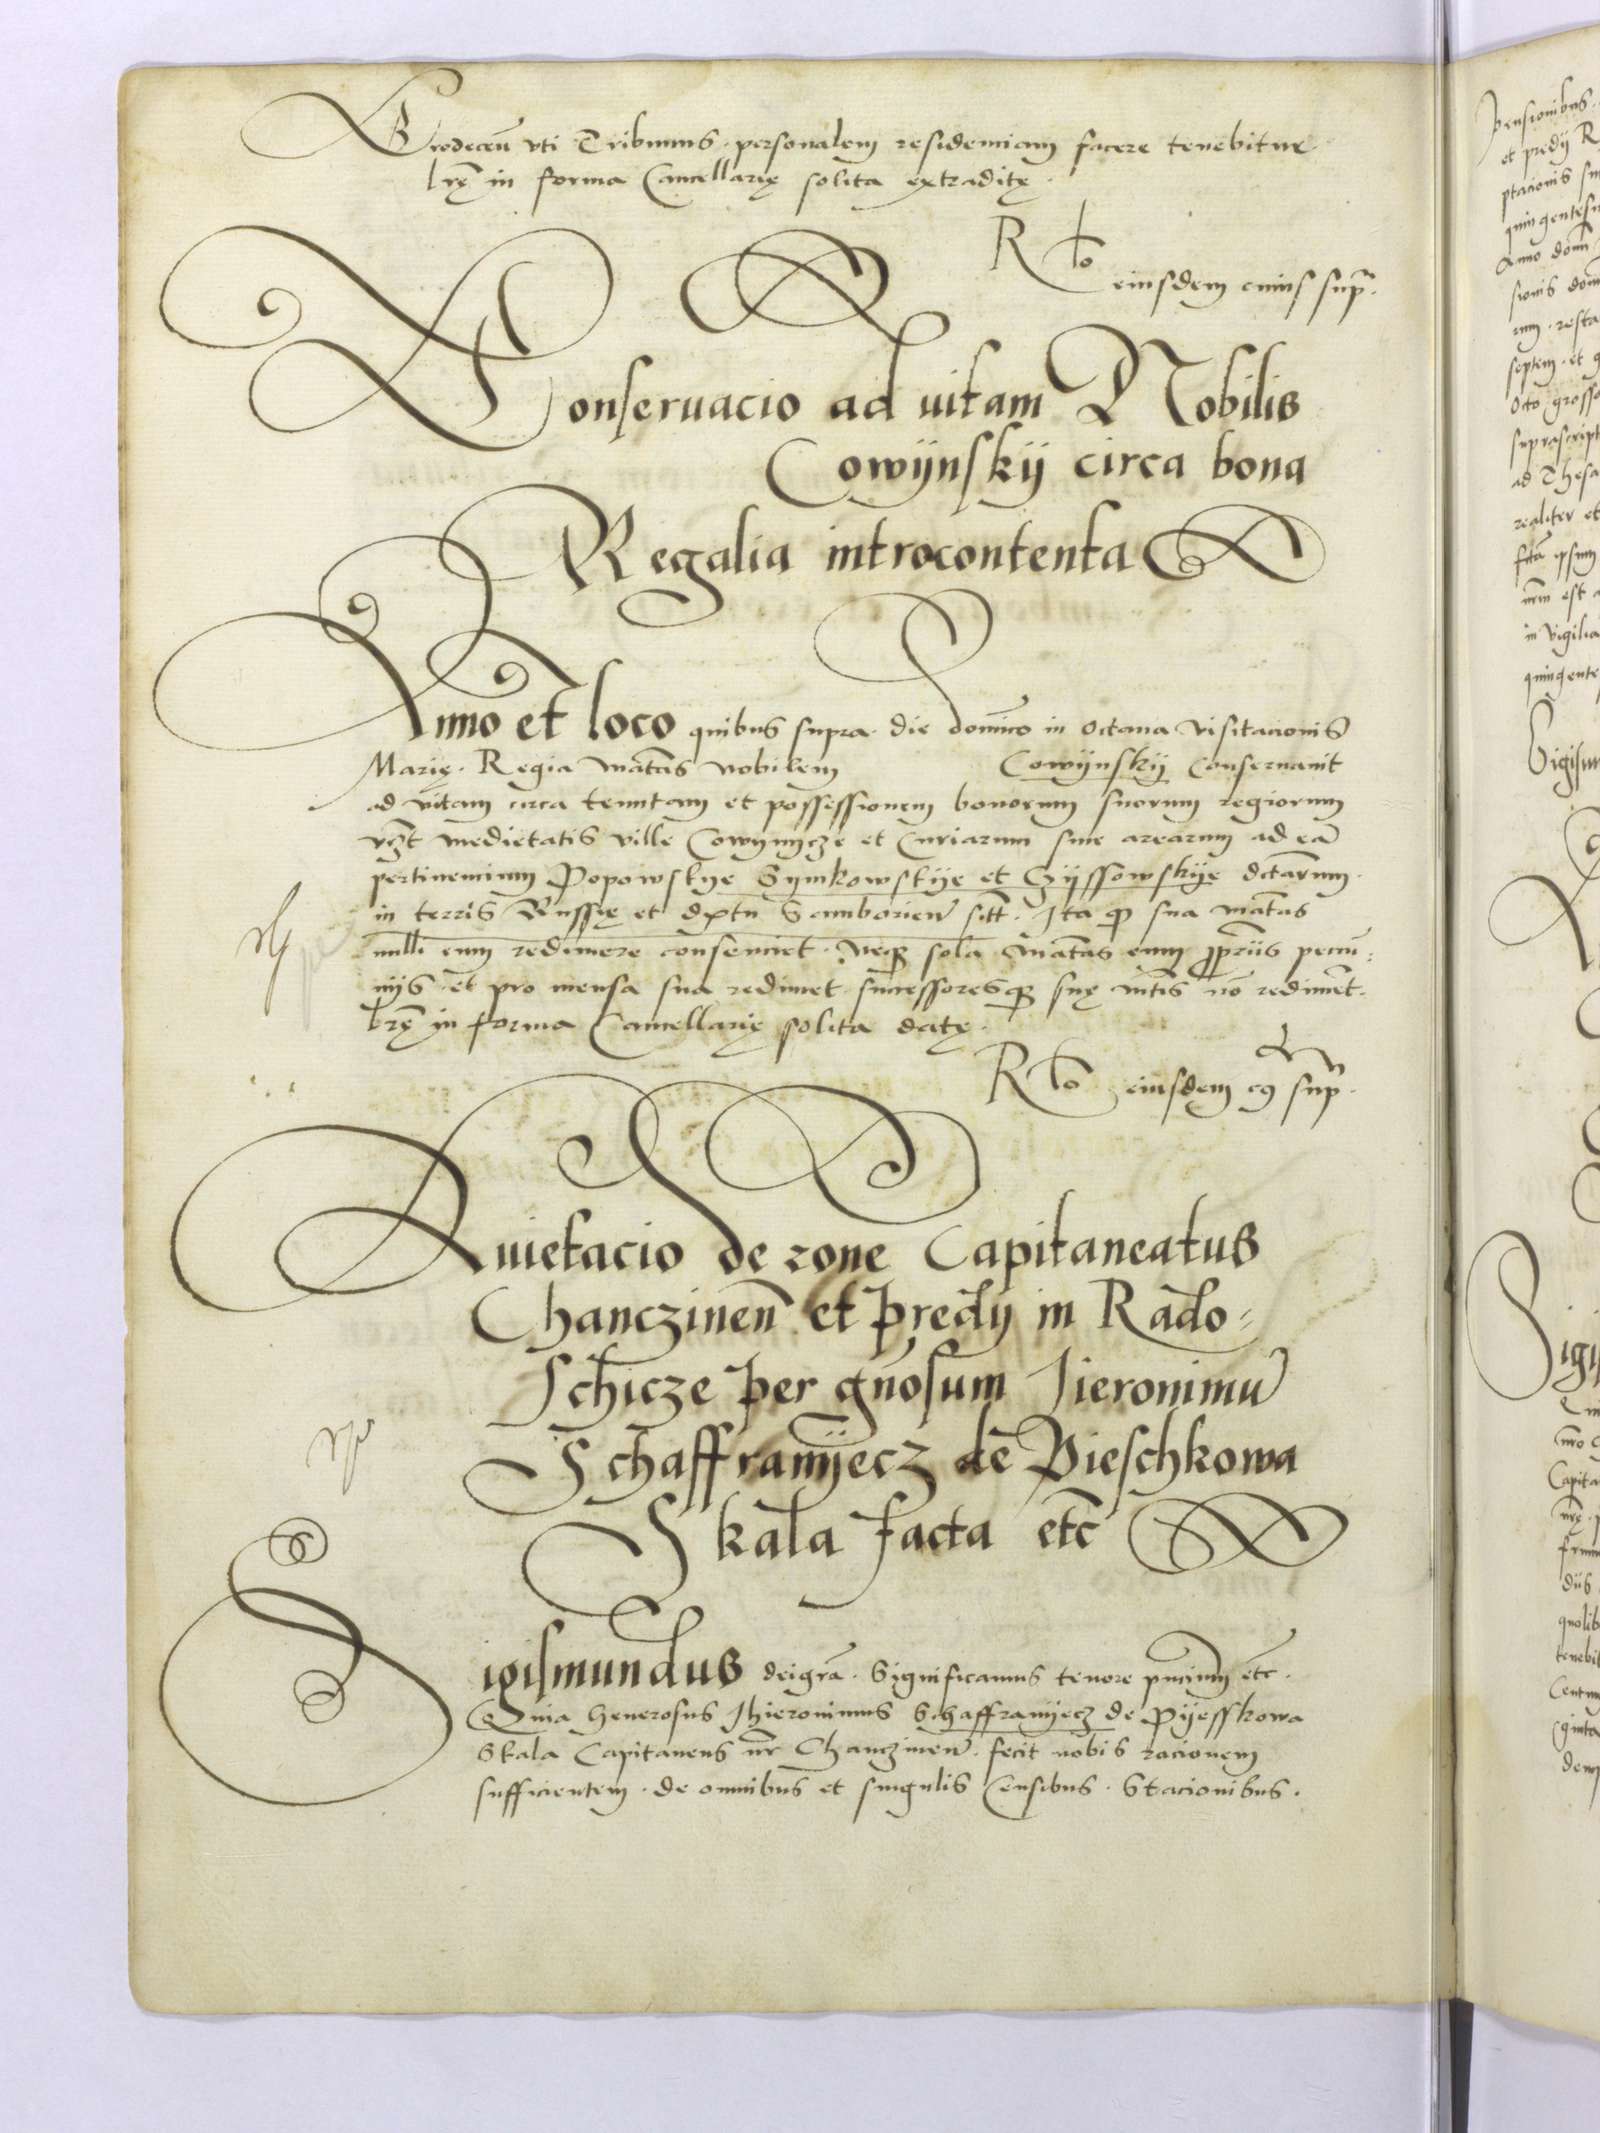 Grodeceñ vti Tribunus personalem residenciam facere tenebitur
lrę in forma Cancellarię solita extraditę.
Rlo eiusdem cuius sup.
Conseruacio ad uitam Nobilis
Cowijnskij circa bona
Regalia introcontenta
Anno et loco quibus supra. die dominico in octaua visitacionis
Marię. Regia matas nobilem Cowijnskij Conseruauit
ad vitam circa tenutam et possessionem bonorum suorum regiorum
vzt medietatis ville Cowynycze et Curiarum siue arearum ad eā
pertinencium Popowskye Synkowskije et Czijssowskije dictarum.
in terris Russię et dxtu Samborien sitt. Ita q sua matas
nulli eum redimere consenciet. Neq sola matas eum pprijs pecu:
nijs et pro mensa sua redimet successoresq suę mtis nō redimēt.
lrę in forma Cancellarię solita datę.
Rlo eiusdem c9 sup.
Quietacio de rone Capitaneatus
Chanczinen et predij in Rado=
schicze per gnosum Jieronimū
Schaffranijecz de Pieschkowa
Skala facta etc
Sigismundus dei grā. Significamus tenore pncium etc.
Quia Generosus Jhieronimus Schaffranijecz de Pijesskowa
Skala Capitaneus nr Chanczinen. fecit nobis racionem
sufficientem. de omnibus et singulis Censibus. Stacionibus.